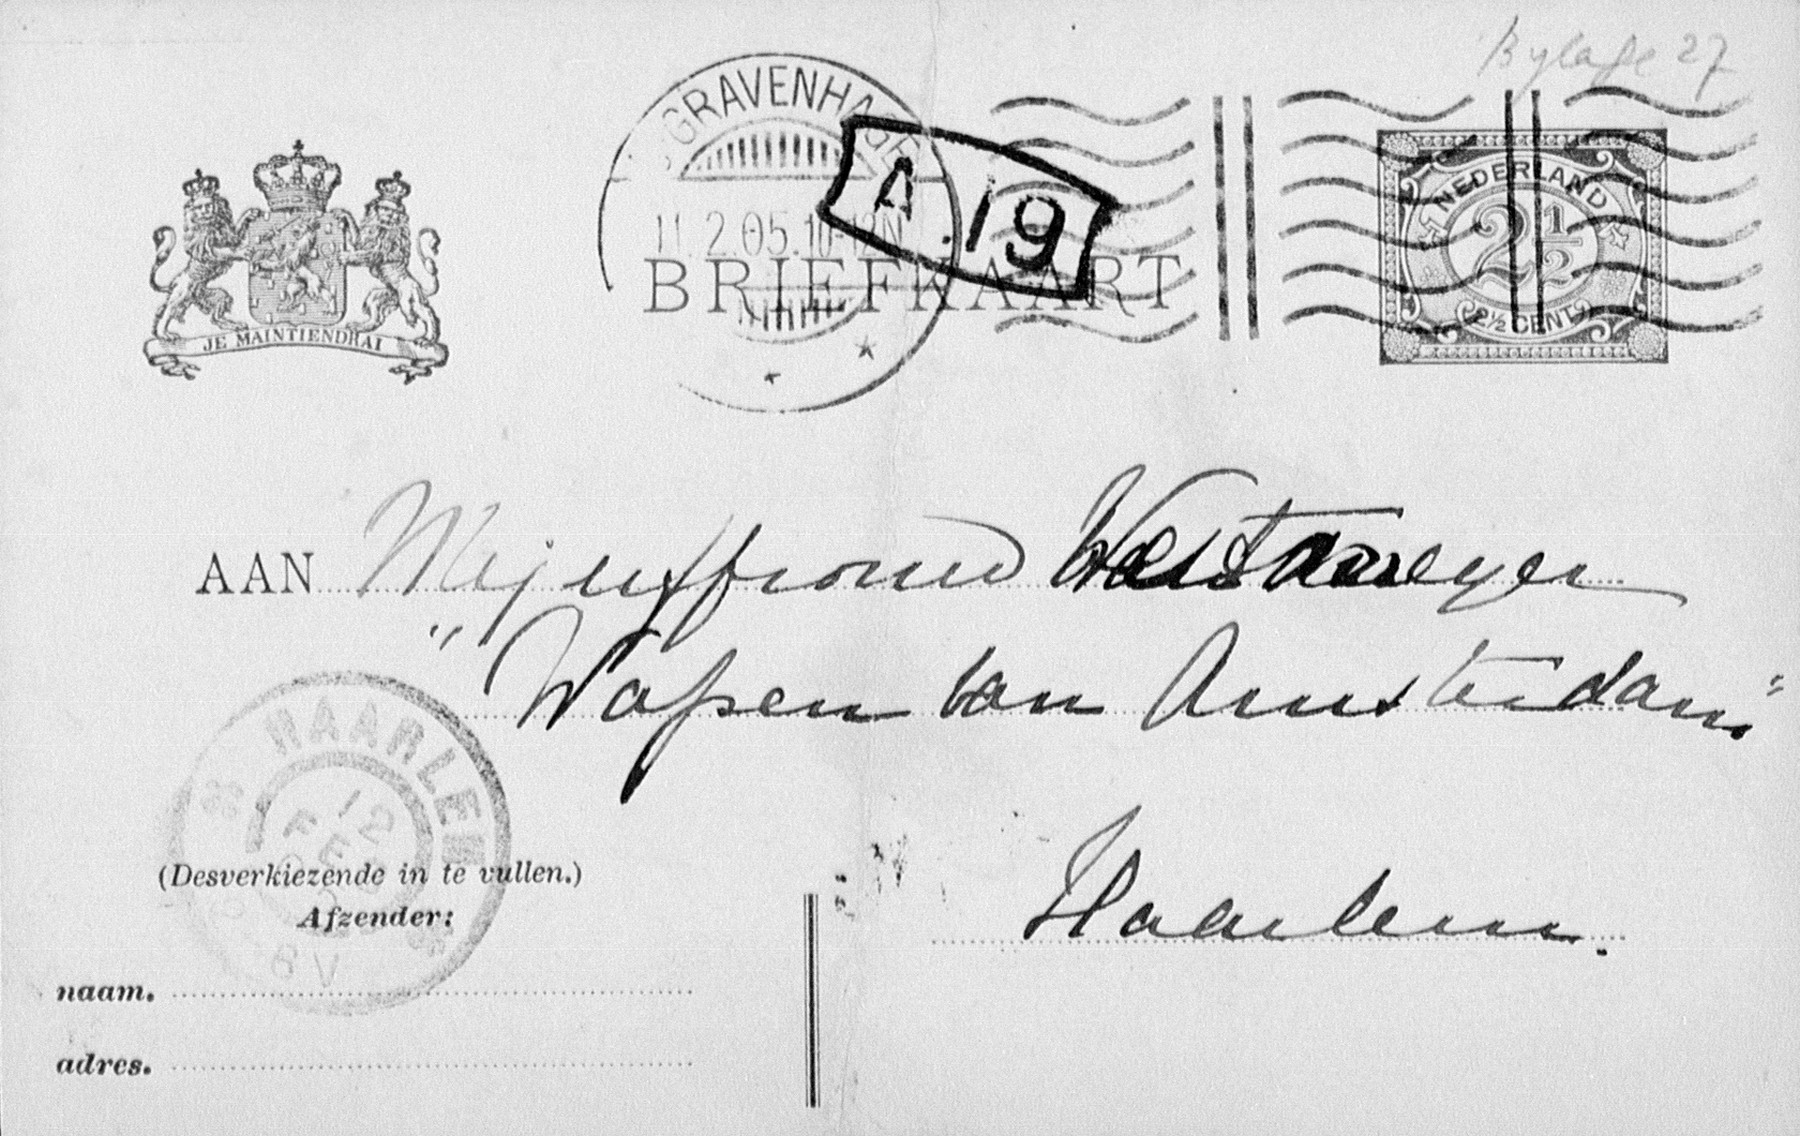 Bylage 27
'S GRAVENHAGE
11.2.05.10-12N
A.19
NEDERLAND
2½
2½ CENT
JE MAINTIENDRAI
BRIEFKAART
AAN Mejuffrouw
"Wapen van Amsterdam"
Haarlem.
HAARLEM
12 FEB
8 V
(Desverkiezende in te vullen.)
Afzender:
naam.
adres.